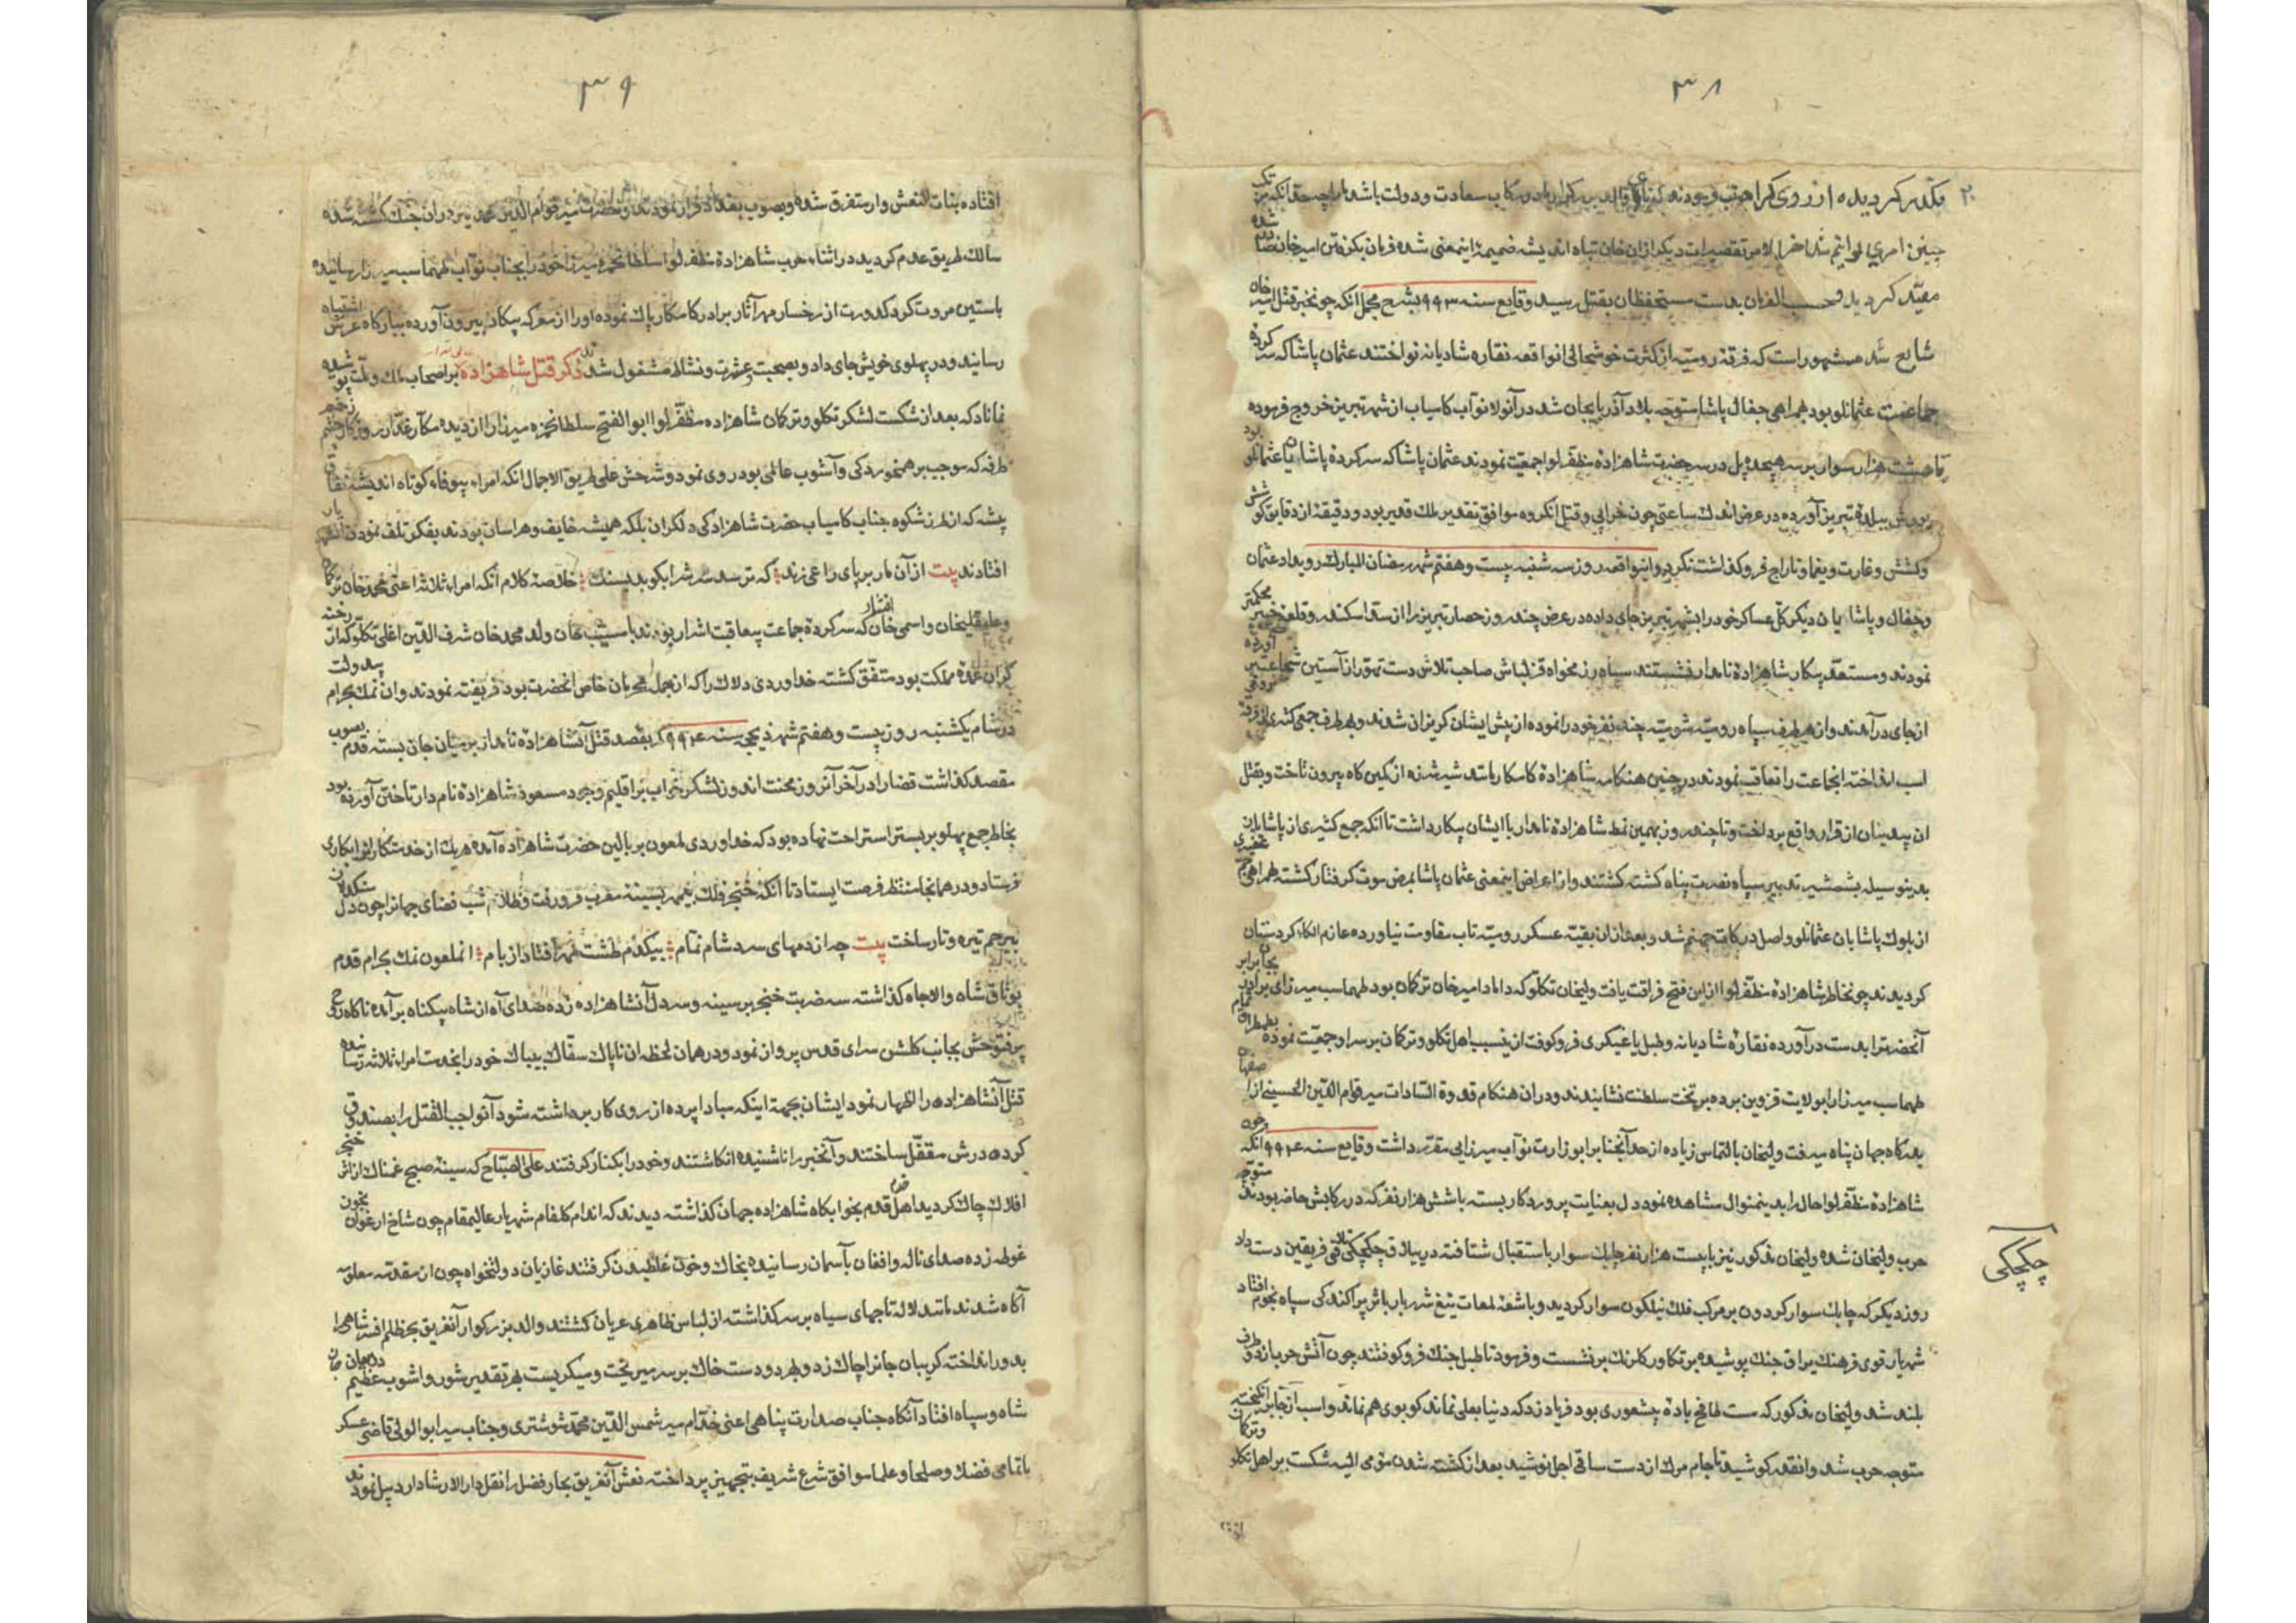 ۳۸
مکدر کردیده از روی کراهت فرمودند که والدیب سعادت و دولت باشد
چنین امری توانیم شد آخر الامر تقصیرات دیکر ازان خان تباه اندیشه ضمیمهٔ اینمعنی شده فرمان بکرفتن امیرخان صادر شده
مقیّد کردید و حسب الفرمان بدست مستحفظان بقتل رسید وقایع سنه ۹۹۳ بشرح مجمل انکه چونخبر قتل امیر خان
شایع شد مشهور است که فرقهٔ رومیّه از کثرت خوشحالی انواقعه نقاره شادیانه نواختند عثمان پاشا که سر کردهٔ
جماعت عثمانلو بود همراهی جغال پاشا متوجه بلاد آذربایجان شد در آنولا نوّآب کامیاب از شهر تبریز خروج فرموده
تا هشت هزار سوار بر سر هیجده پل در سر حضرت شاهزادهٔ مظفّر لوا جمعیّت نمودند عثمان پاشا که سرکردهٔ پاشایان عثمانلو بود
یورش ببلدهٔ تبریز آورده در عرض اندک ساعتی چون خرابی و قتل انکروه موافق تقدیر ملک قدیر بود و دقیقهٔ از دقایق کوشش
و کشش و غارت و یغما و تاراج فروکذاشت نکردند و اینواقعه روز سه شنبه بیست و هفتم شهر رمضان المبارک رویداد عثمان
و جغال و پاشایان دیکر کلّ عساکر خود را بشهر تبریز جای داده در عرض چند روز حصار تبریز را از سدّ اسکندر و قلعهٔ خیبر محکمتر
نمودند و مستعدّ پیکار شاهزادهٔ نامدار نشستند سپاه رزمخواه قزلباش صاحب تلاش دست تهوّر از آستین شجاعت بر آورده
از جای در آمدند و از هر طرف سپاه رومیّه شومیّه چند نفر خود را نموده از پیش ایشان کریزان شدند و بهر طرف جمعی کثیر
اسب انداخته انجماعت را تعاقب نمودند در چنین هنکامه شاهزادهٔ کامکار مانند شیر شرزه از کمین کاه بیرون تاخت و بقتل
ان بیدینان از قرار واقع پرداخت و تا چند روز بهمین نمط شاهزادهٔ نامدار با ایشان پیکار داشت تا آنکه جمع کثیری از پاشایان
بدینوسیله بشمشیر تدبیر سپاه نصرت پناه کشته کشتند و از اعراض اینمعنی عثمان پاشا بمرض موت کرفتار کشته همراهی جمع غفیری
از بلوک پاشایان عثمانلو واصل درکات جهنم شد و بعد ازان بقیّه عسکر رومیّه تاب مقاومت نیاورده عازم الکاء کردستان
کردیدند چونخاطر شاهزادهٔ مظفّر لوا ازین فتح فراقت یافت ولیخان تکلو که داماد امیرخان ترکمان بود طهماسب میرزای برادر
آنحضرترا بدست در آورده نقارهٔ شادیانه و طبل یاغیکری فروکوفت ازین سبب اهل تکلو و ترکمان بر سر او جمعیّت نموده
طهماسب میرزا را بولایت قزوین برده بر تخت سلطنت نشانیدند و در ان هنکام قدوة السّادات میر قوام الدّین الحسینی از اصفهان
بدرکاه جهان پناه میرفت ولیخان بالتماس زیاده از حد آنجنابرا بوزارت نوّآب میرزایی مقرّر داشت وقایع سنه ۹۹۴ انکه چون
شاهزادهٔ مظفّر لوا حال را بدینمنوال مشاهده نمود دل بعنایت پروردکار بسته با شش هزار نفر که در رکابش حاضر بودند متوجّه
حرب ولیخان شده ولیخان مذکور نیز با بیست هزار نفر چابک سوار باستقبال شتافته در ییلاق چکچکی تلاقی فریقین دست داد
چکچکی
روز دیکر که چابک سوار کردون بر مرکب فلک نیلکون سوار کردید و باشعهٔ لمعات تیغ شهریار باثر پراکندکی سپاه نجوم افتاد
شهریار قوی فرهنک یراق جنک پوشیده بر تکاور کلرنک بر نشست و فرمود تا طبل جنک فروکوفتند چون آتش حرب از دو طرف
بلند شد ولیخان مذکور که مست طافح بادهٔ بیشعوری بود فریاد زد که دنیا بعلی نماند کو بوی هم نماند و اسب از جا برانکیخته
متوجه حرب شد و انقدر کوشید تا جام مرک از دست ساقی اجل نوشید بعد از کشته شدن مومی الیه شکست بر اهل تکلو و ترکمان
۳۹
افتاده بنات النعش وار متفرّق شده و بصوب بغداد فرار نمودند و حضرت میر قوام الدین محمد نیز در ان جنک کشته شده
سالک طریق عدم کردید در اثناء حرب شاهزادهٔ مظفر لوا سلطانحمزه میرزا خود را بجناب نوّاب طهماسب میرزا رسانیده
باستین مروت کرد کدورت از رخسار مهر آثار برادر کامکار پاک نموده او را از معرکه پیکار بیرون آورده ببارکاه عرش اشتباه
رسانید و در پهلوی خویش جای داد و بصحبت عشرت و نشاط مشغول شدند ذکر قتل شاهزاده بر اصحاب ملک و ملّت پوشیده
نماناد که بعد از شکست لشکر تکلو و ترکمان شاهزاده مظفّر لوا ابو الفتح سلطانحمزه میرزا را از دیده مکّار غدّار روزکار زخم چشم
طرفه که موجب برهمخوردکی و آشوب عالمی بود روی نمود و شرحش علی طریق الاجمال انکه امراء بیوفاء کوتاه اندیشه نفاق
پیشه که از طرز شکوه جناب کامیاب حضرت شاهزادکی دلکران بلکه همیشه خایف و هراسان بودند بفکر تلف نمودن
افتادند بیت از آن مار بر پای راعی زند که ترسد سرشرا بکوبد بسنک خلاصهٔ کلام آنکه امراء ثلاثه اعنی محمد خان ترکمان
و علیقلیخان و اسمی خان افشار که سرکردهٔ جماعت بیعاقبت اشرار بودند با مسیب خان ولد محمد خان شرف الدّین اغلی تکلو که از
کران عمدهٔ مملکت بود متفّق کشته خداوردی دلاک را که از جمله محرمان خاص آنحضرت بود فریفته نمودند و ان نمک بحرام بیدولت
در شام یکشنبه روز بیست و هفتم شهر ذیحجه سنه ۹۹۴ بقصد قتل آنشاهزادهٔ نامدار بر میان جان بسته قدم بصوب
مقصد کذاشت قضا را در آخر آنروز محنت اندوز لشکر خواب بر اقلیم وجود مسعود شاهزادهٔ نام دار تاختن آورده بود
بخاطر جمع پهلو بر بستر استراحت نهاده بود که خداوردی ملعون بر بالین حضرت شاهزاده آمده هر یک از خدمتکارانرا بکاری
فرستاد و در همانجا منتظر فرصت ایستاد تا آنکه خنجر فلک بیمهر بسینهٔ مغرب فرو رفت و ظلام شب فضای جهانرا چون دل سنکدلان
بیرحم تیره و تار ساخت بیت چه از دمهای سرد شام نمّام بیکدم طشت مهر افتاد از بام انملعون نمک بحرام قدم
بوثاق شاه والاجاه کذاشته سه ضربت خنجر بر سینه و سر دل آنشاهزاده زده صدای آه از شاه بیکناه بر آمده ناکاه روح
پر فتوحش بجانب کلشن سرای قدس پرواز نمود و در همان لحظه ان ناپاک سفّاک بیباک خود را بخدمت امراء ثلاثه رسانیده
قتل آنشاهزاده را اظهار نمود ایشان بجهة اینکه مبادا پرده از روی کار برداشته شود آنواجب القتل را بصندوق
کرده درش مقفّل ساختند و آنخبر را ناشنیده انکاشتند و خود را بکنار کرفتند علی الصّباح که سینهٔ صبح غمناک از اثر خنجر
افلاک چاک کردید اهل قدم بخوابکاه شاهزاده جهان کذاشته دیدند که اندام کلفام شهریار عالیمقام چون شاخ ارغوان بخون
غوطه زده صدای ناله و افغان بآسمان رسانیده بخاک و خون غلطیدن کرفتند غازیان دولتخواه چون از مقدمه معلومه
آکاه شدند مانند لاله تاجهای سیاه بر سر کذاشته از لباس ظاهری عریان کشتند والد بزرکوار آنغریق بحر ظلم افسر شاهی را
بدور انداخته کریبان جانرا چاک زد و بهر دو دست خاک بر سر میریخت و میکریست بهر تقدیر شور و اشوب عظیم
شاه و سپاه افتاد آنکاه جناب صدارت پناهی اعنی خدّام میر شمس الدّین محمّد شوشتری و جناب میر ابو الولی قاضی عسکر
با تمامی فضلا و صلحا و علما موافق شرع شریف بتجهیز پرداخته نعش آنغریق بحار فضل را نقل دار الارشاد اردبیل نمودند